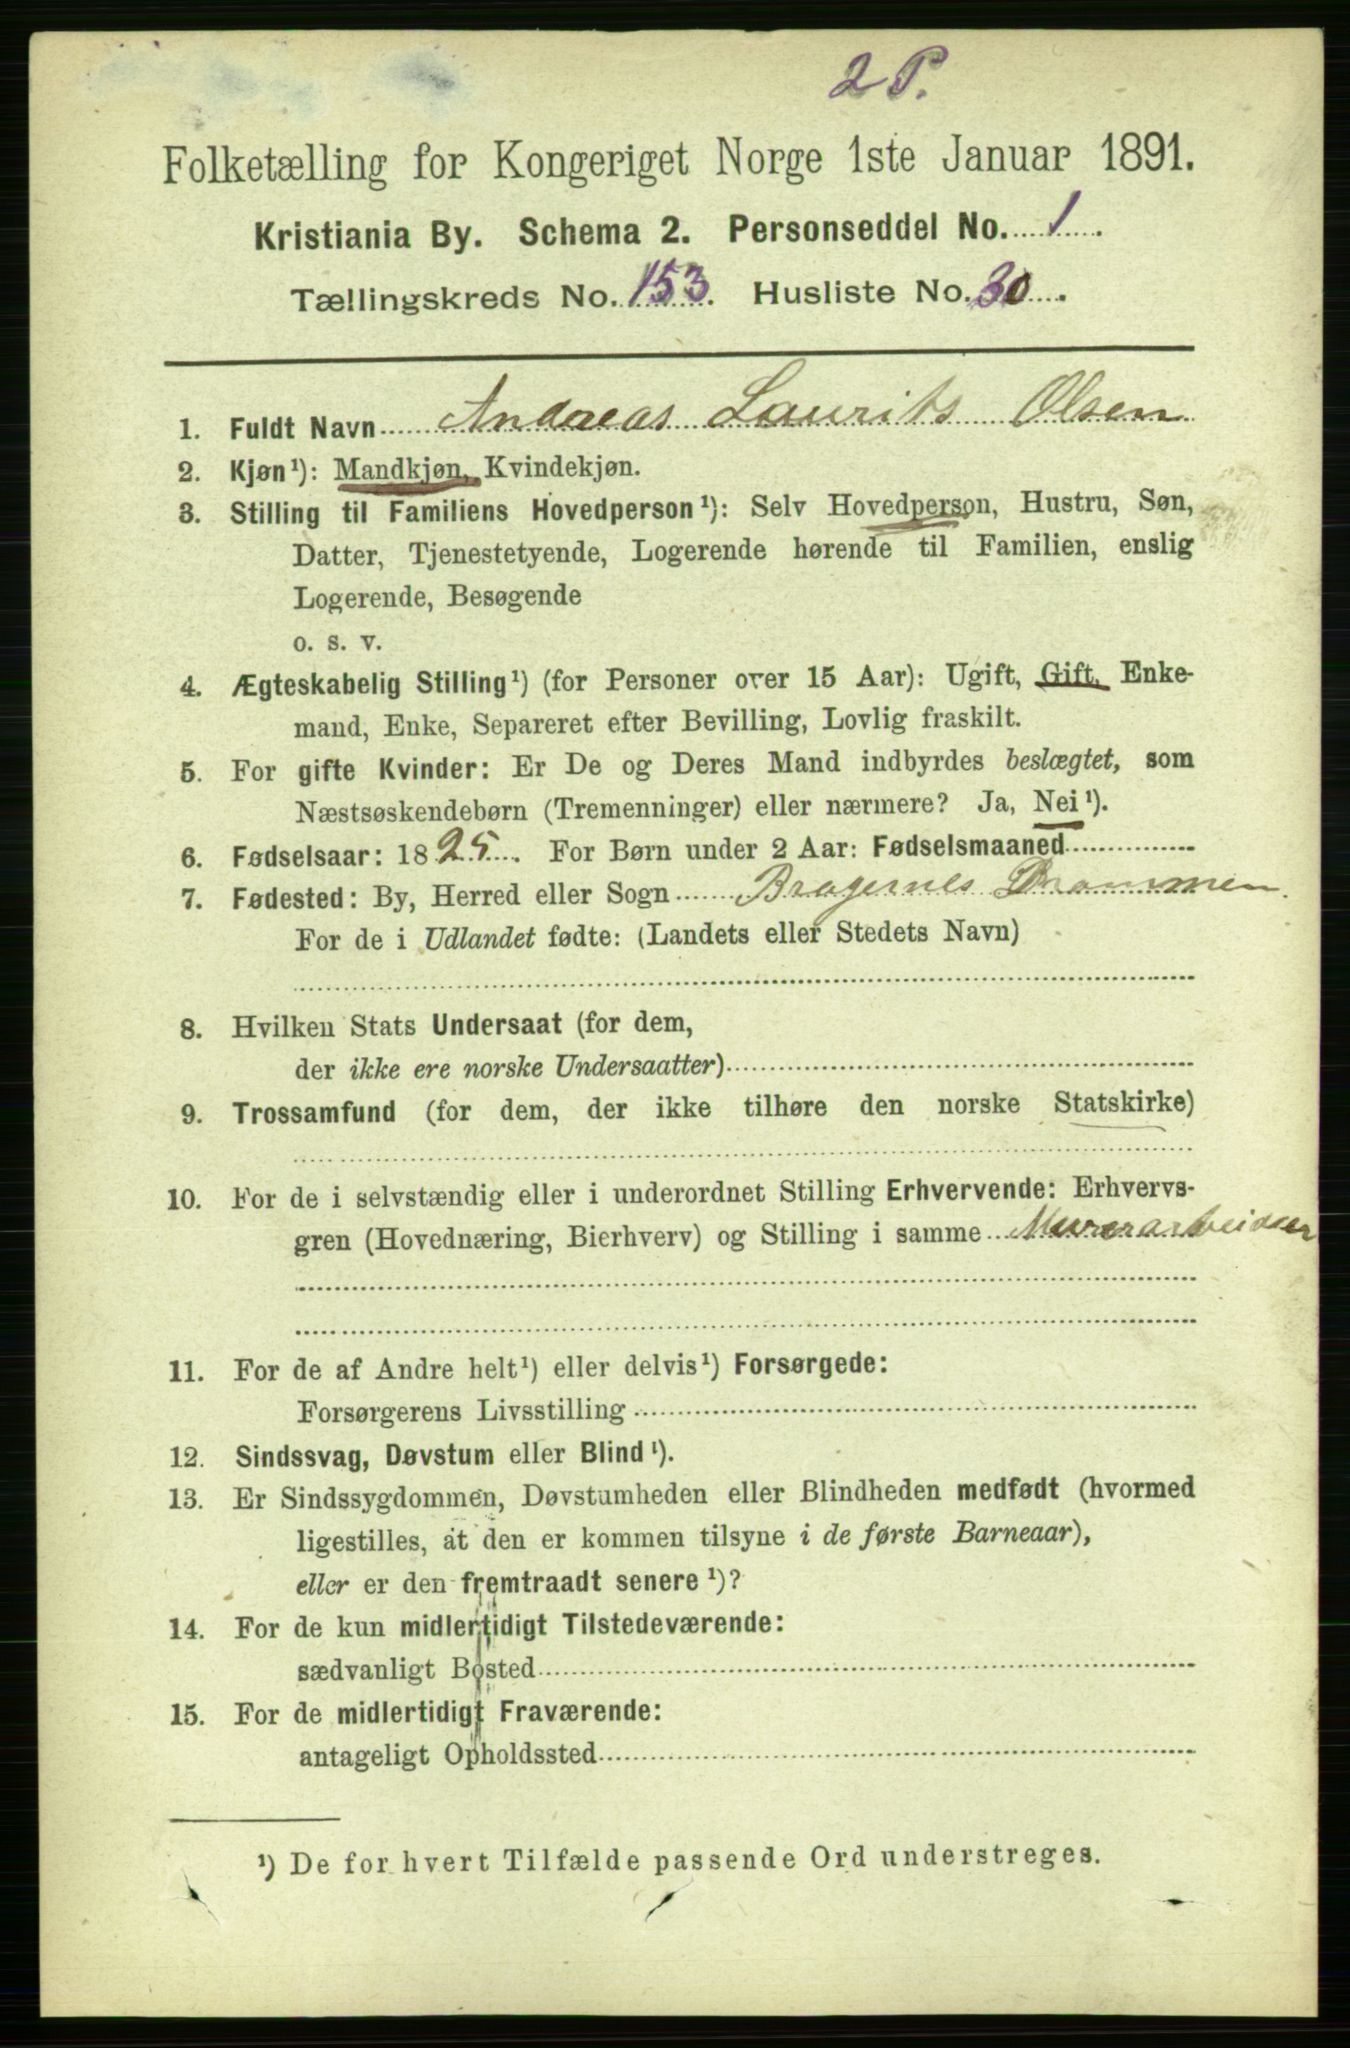 2 P.
Folketælling for Kongeriget Norge 1ste Januar 1891.
Kristiania By. Schema 2. Personseddel No. 1.
Tællingskreds No. 153. Husliste No. 30.
1. Fuldt Navn Andreas Laurits Olsen
2. Kjøn¹): Mandkjøn, Kvindekjøn.
3. Stilling til Familiens Hovedperson¹): Selv Hovedperson, Hustru, Søn,
Datter, Tjenestetyende, Logerende hørende til Familien, enslig
Logerende, Besøgende
o. s. v.
4. Ægteskabelig Stilling¹) (for Personer over 15 Aar): Ugift, Gift, Enke-
mand, Enke, Separeret efter Bevilling, Lovlig fraskilt.
5. For gifte Kvinder: Er De og Deres Mand indbyrdes beslægtet, som
Næstsøskendebørn (Tremenninger) eller nærmere? Ja, Nei¹).
6. Fødselsaar: 1825. For Børn under 2 Aar: Fødselsmaaned
7. Fødested: By, Herred eller Sogn Bragernes Drammen.
For de i Udlandet fødte: (Landets eller Stedets Navn)
8. Hvilken Stats Undersaat (for dem,
der ikke ere norske Undersaatter)
9. Trossamfund (for dem, der ikke tilhøre den norske Statskirke)
10. For de i selvstændig eller i underordnet Stilling Erhvervende: Erhvervs-
gren (Hovednæring, Bierhverv) og Stilling i samme Murerarbeider
11. For de af Andre helt¹) eller delvis¹) Forsørgede:
Forsørgerens Livsstilling
12. Sindssvag, Døvstum eller Blind¹).
13. Er Sindssygdommen, Døvstumheden eller Blindheden medfødt (hvormed
ligestilles, at den er kommen tilsyne i de første Barneaar),
eller er den fremtraadt senere¹)?
14. For de kun midlertidigt Tilstedeværende:
sædvanligt Bosted
15. For de midlertidigt Fraværende:
antageligt Opholdssted
¹) De for hvert Tilfælde passende Ord understreges.